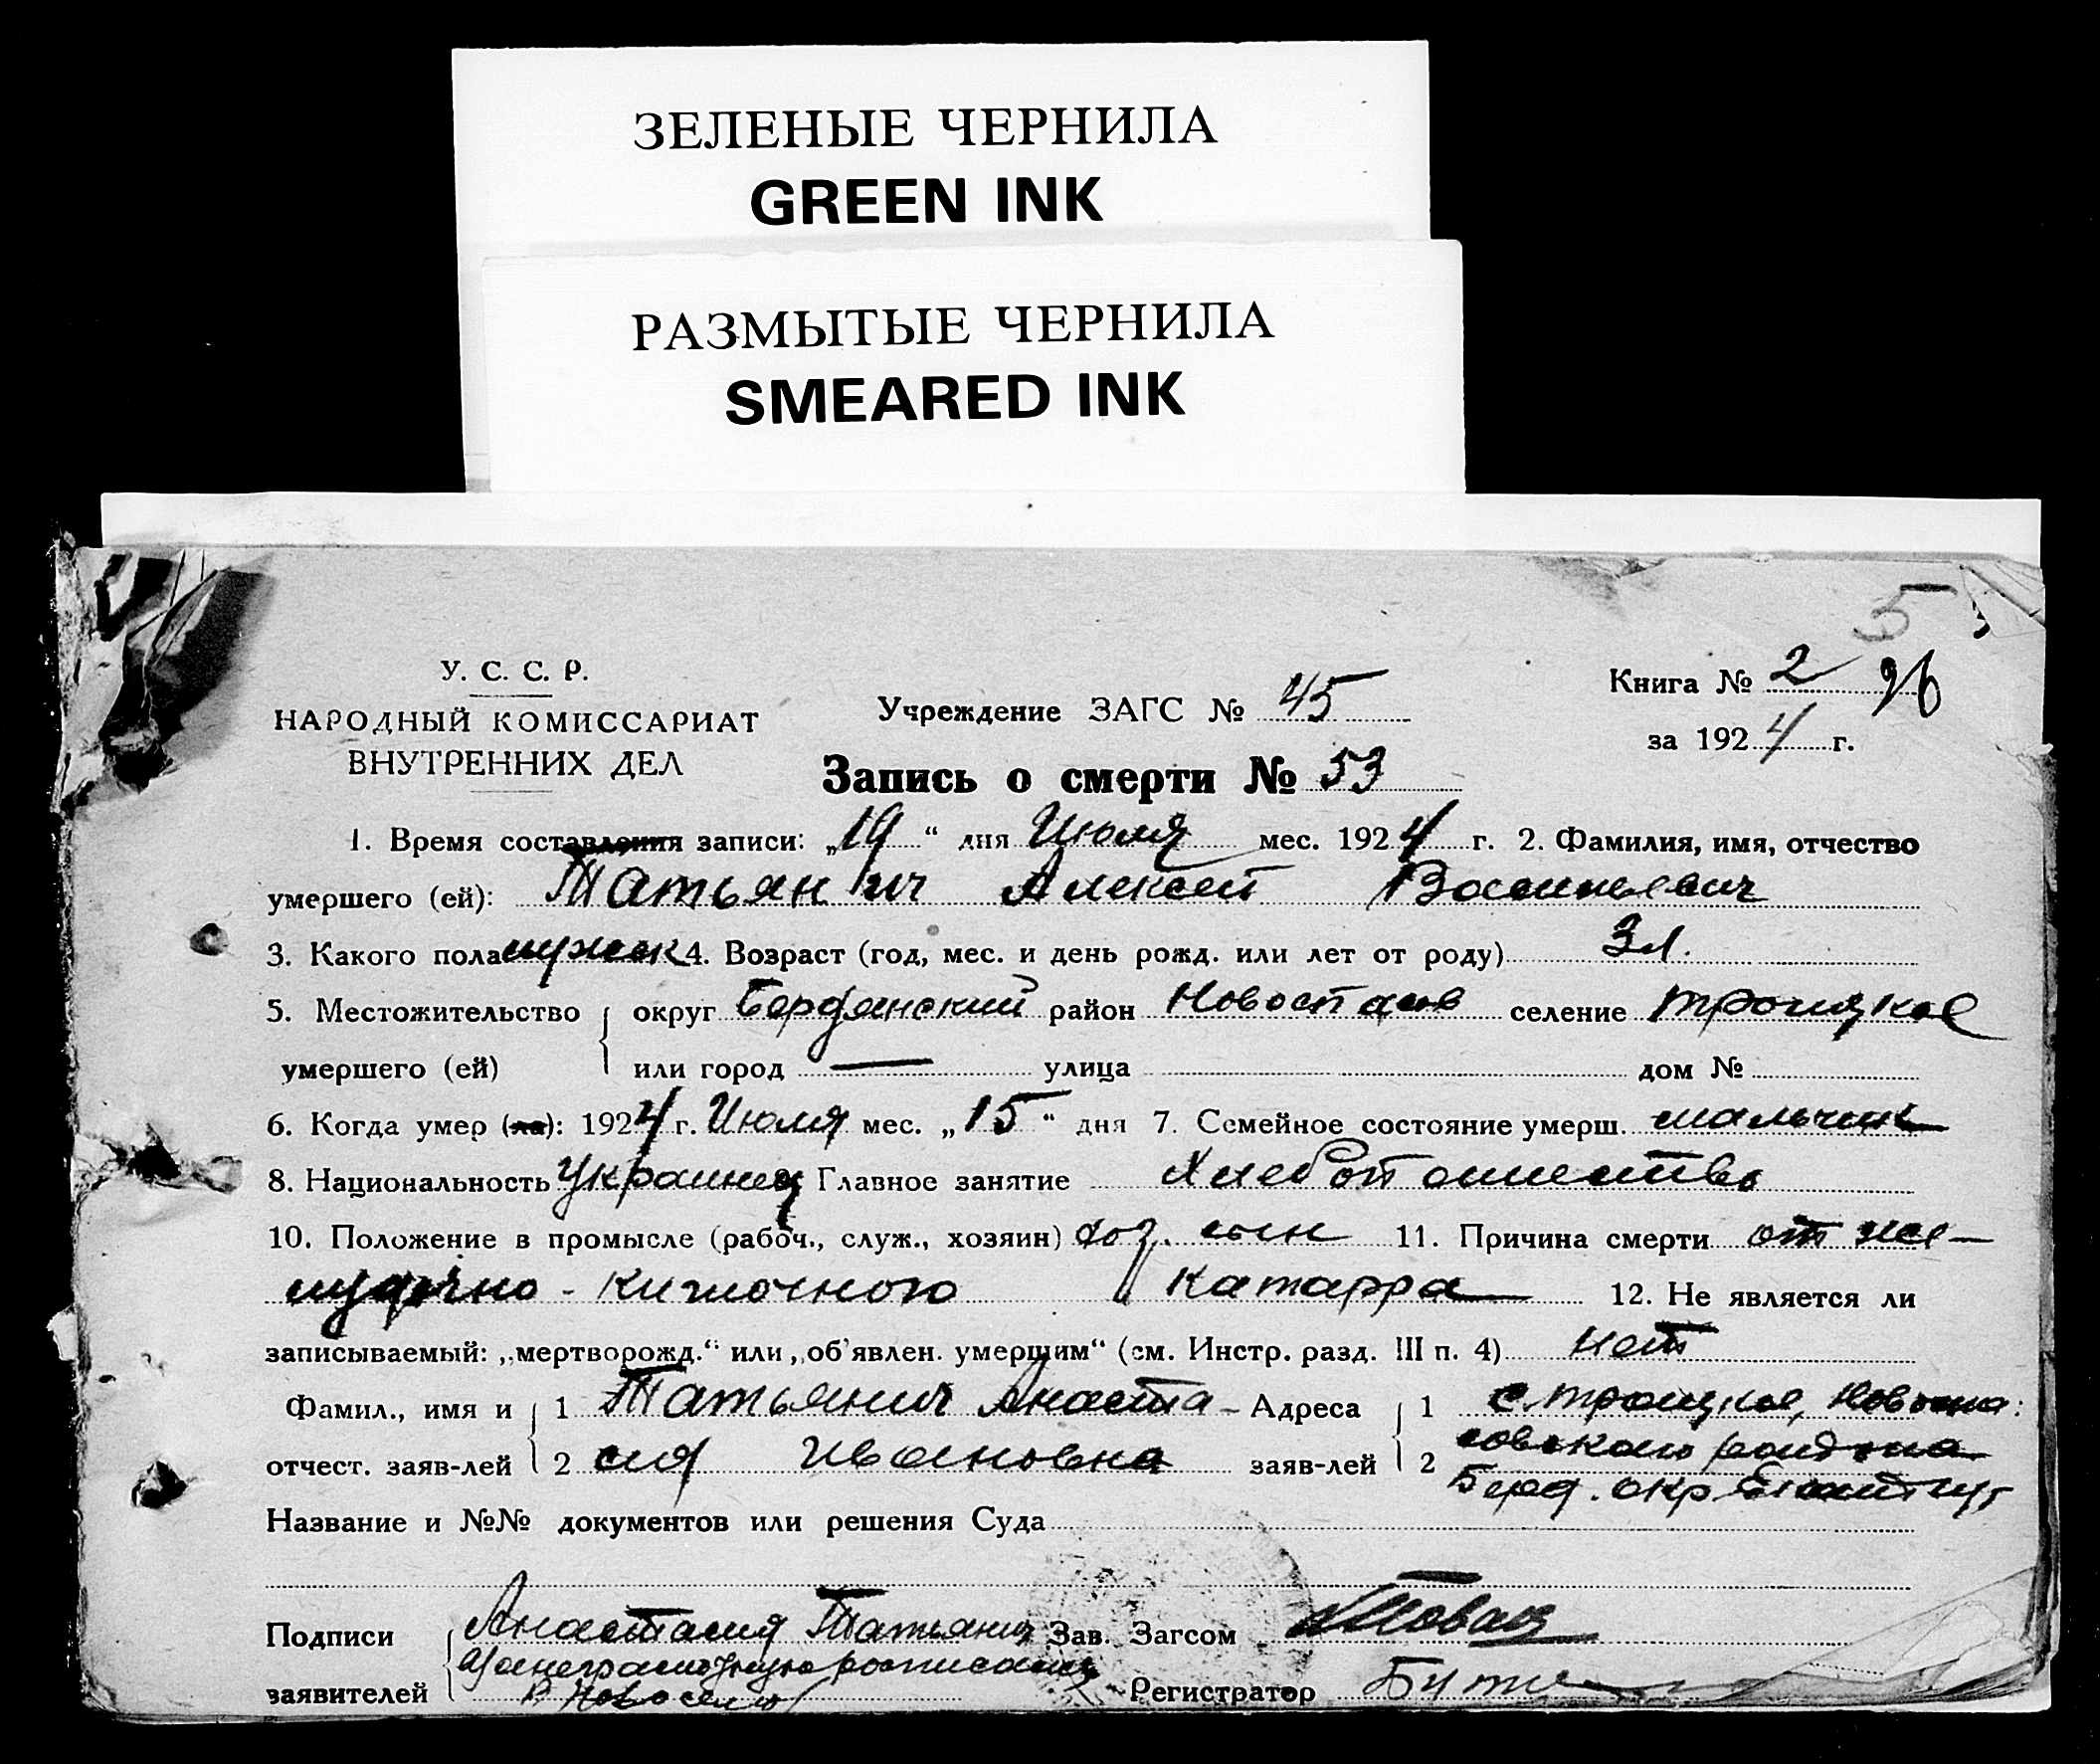 ЗЕЛЕНЫЕ ЧЕРНИЛА
GREEN INK
РАЗМЫТЫЕ ЧЕРНИЛА
SMEARED INK
5
У. С. С. Р.
НАРОДНЫЙ КОМИССАРИАТ
ВНУТРЕННИХ ДЕЛ
Учреждение ЗАГС № 45
Книга № 2 96
за 1924 г.
Запись о смерти № 53
1. Время составления записи: „19“ дня Июля мес. 1924 г. 2. Фамилия, имя, отчество
умершего (ей): Татьянич Алексей Васильевич
3. Какого пола мужск 4. Возраст (год, мес. и день рожд. или лет от роду) 3 л.
5. Местожительство округ Бердянский район Новоспасов селение Троицкое
умершего (ей) или город — улица дом №
6. Когда умер (ла): 1924 г. Июля мес. „15“ дня 7. Семейное состояние умерш. мальчик
8. Национальность Украинец Главное занятие Хлебопашество
10. Положение в промысле (рабоч., служ., хозяин) хоз. сын 11. Причина смерти от же-
лудочно-кишочного катарра 12. Не является ли
записываемый: „мертворожд.“ или „об'явлен. умершим“ (см. Инстр. разд. III п. 4) Нет
Фамил., имя и 1 Татьянич Анаста- Адреса 1 с. Троицкое, Новоспа:
отчест. заяв-лей 2 сия Ивановна заяв-лей 2 совского района
Берд. окр
Название и №№ документов или решения Суда
Подписи Анастасия Татьянич Зав. Загсом
а за неграмотную росписался
заявителей Регистратор